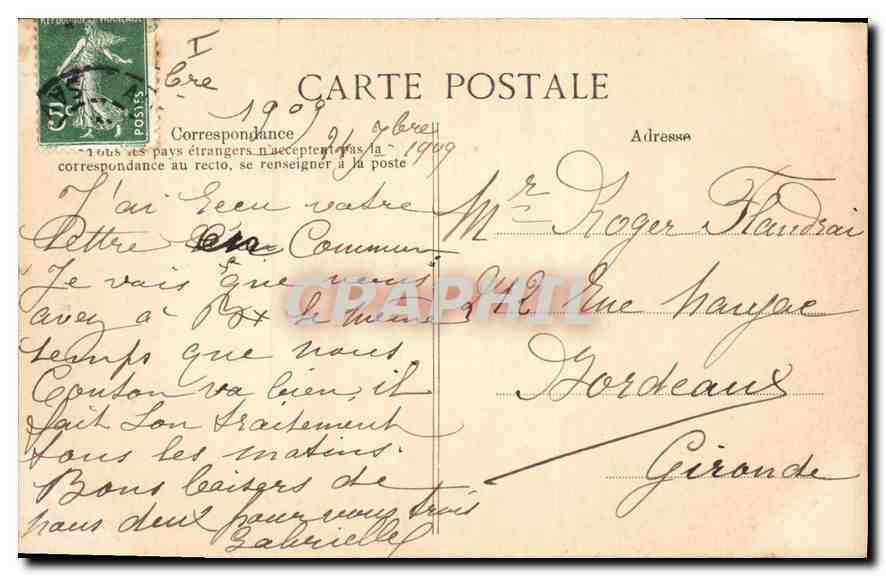 RÉPUBLIQUE FRANÇAISE
POSTES
I
bre
1909
CARTE POSTALE
Correspondance
Adresse
Tous les pays étrangers n'acceptent pas la
correspondance au recto, se renseigner à la poste
7bre
1909
J'ai Recu votre
lettre en Commun
Je vois que vous
avez à Bx le même
temps que nous.
Tonton va bien, il
fait son traitement
tous les matins.
Bons baisers de
nous deux pour vous trois
Gabrielle
Mr Roger Flandrai
242 Rue Naujac
Bordeaux
Gironde
CPAPHIL